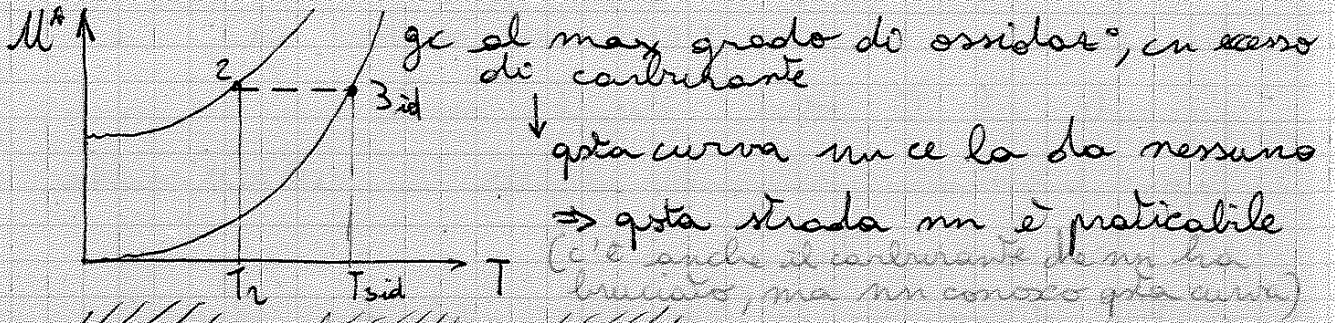 U*
gc al max grado di ossidaz°, cn eccesso
di carburante
2
3id
qsta curva nn ce la da nessuno
⇒ qsta strada nn è praticabile
(c'è anche il carburante che nn ha
bruciato, ma nn conosco qsta curva)
T2 T3id T